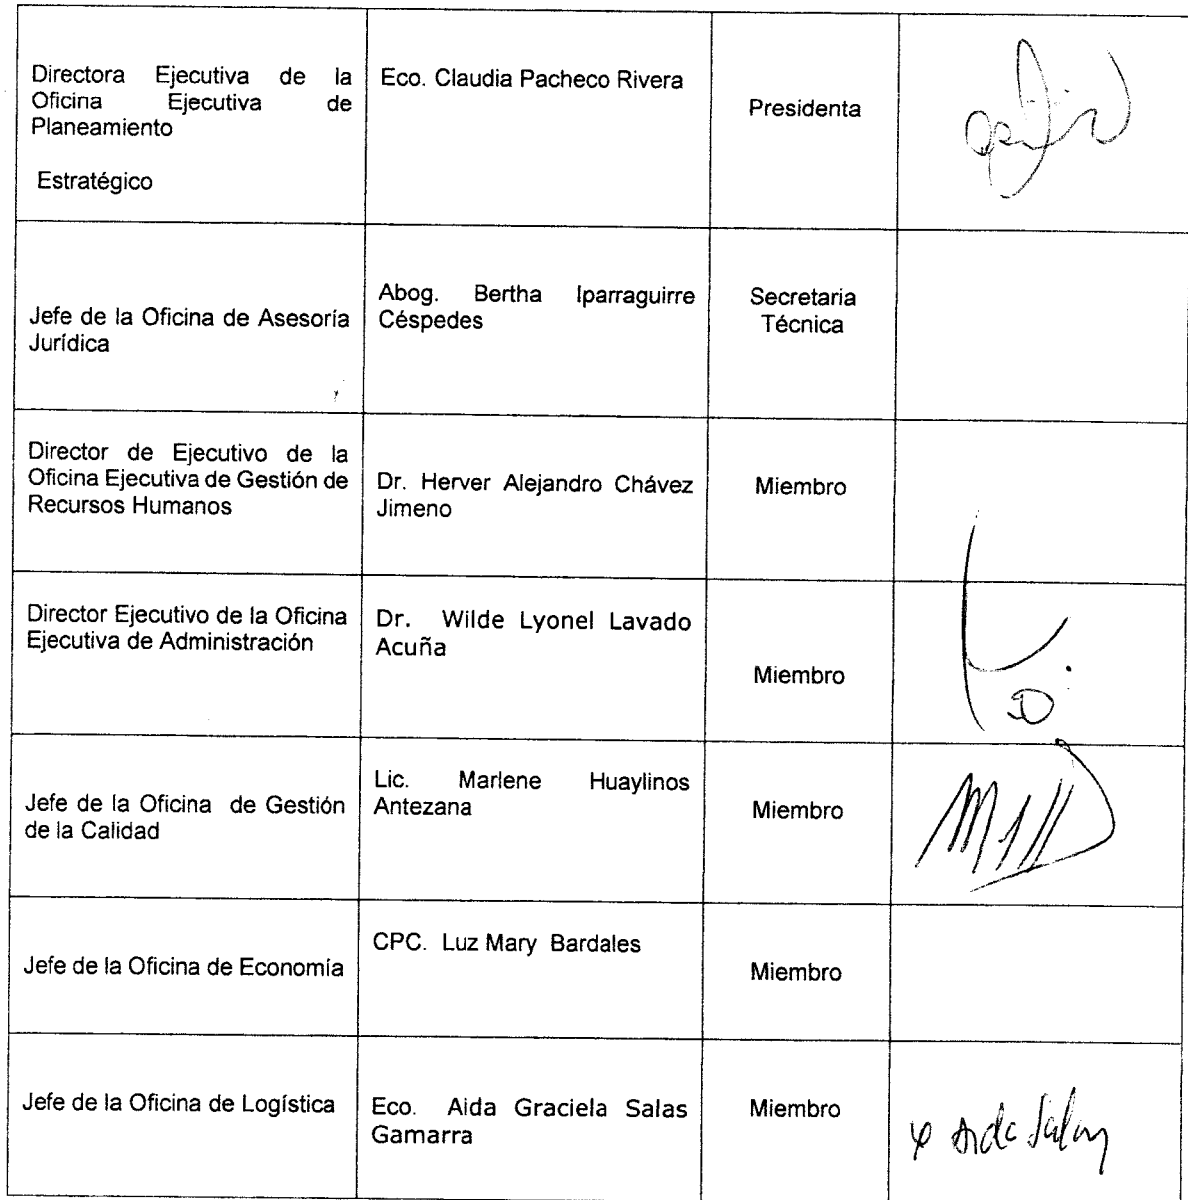 Directora Ejecutiva de la
Oficina Ejecutiva de
Planeamiento
Estratégico
Eco. Claudia Pacheco Rivera
Presidenta
Jefe de la Oficina de Asesoría
Jurídica
Abog. Bertha Iparraguirre
Céspedes
Secretaria
Técnica
Director de Ejecutivo de la
Oficina Ejecutiva de Gestión de
Recursos Humanos
Dr. Herver Alejandro Chávez
Jimeno
Miembro
Director Ejecutivo de la Oficina
Ejecutiva de Administración
Dr. Wilde Lyonel Lavado
Acuña
Miembro
Jefe de la Oficina de Gestión
de la Calidad
Lic. Marlene Huaylinos
Antezana
Miembro
Jefe de la Oficina de Economía
CPC. Luz Mary Bardales
Miembro
Jefe de la Oficina de Logística
Eco. Aida Graciela Salas
Gamarra
Miembro